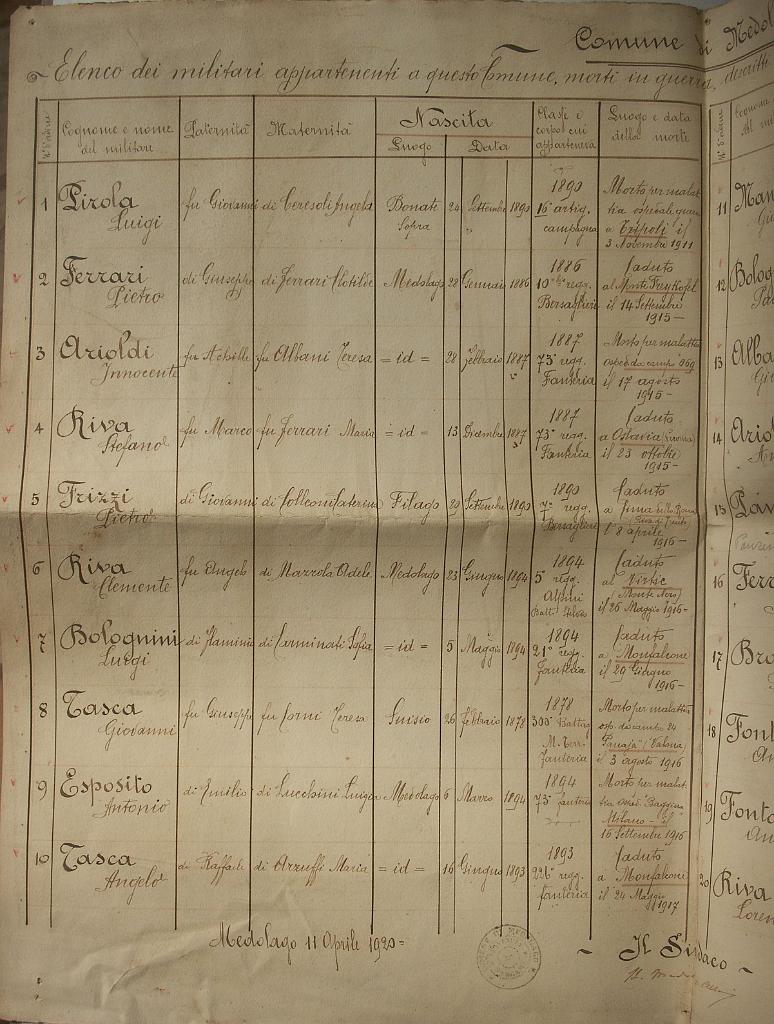 Comune di Medol
Elenco dei militari appartenenti a questo Comune, morti in guerra, descritti
N° d'ordine
Cognome e nome
del militare
Paternità
Maternità
Nascita
Luogo
Data
Classe e
corpo cui
apparteneva
Luogo e data
della morte
1
Pirola
Luigi
fu Giovanni
di Ceresoli Angela
Bonate
Sopra
24 Settembre 1890
1890
16° artig.
campagna
Morto per malat
tia ospedale
a Tripoli il
3 Novembre 1911
2
Ferrari
Pietro
di Giuseppe
di Ferrari Clotilde
Medolago
28 Gennaio 1886
1886
10° regg.
Bersaglieri
Caduto
al Monte
il 14 Settembre
1915-
3
Arioldi
Innocente
fu Achille
fu Albani Teresa
= id =
28 Febbraio 1887
1887
73° regg.
Fanteria
Morto per malattia
da campo 069
il 17 agosto
1915-
4
Riva
Stefano
fu Marco
fu Ferrari Maria
= id =
13 Dicembre 1887
1887
73° regg.
Fanteria
Caduto
a Oslavia
il 23 ottobre
1915-
5
Frizzi
Pietro
di Giovanni
di Colleoni Caterina
Filago
29 Settembre 1890
1890
7° regg.
Bersaglieri
Caduto
a
l'8 aprile
1916-
6
Riva
Clemente
fu Angelo
di Mazzola Adele
Medolago
23 Giugno 1894
1894
5° regg.
Alpini
Batt.
Caduto
al
Monte Nero)
il 26 Maggio 1916-
7
Bolognini
Luigi
di Flaminio
di Carminati Sofia
= id =
5 Maggio 1894
1894
21° regg.
Fanteria
Caduto
a Monfalcone
il 29 Giugno
1916-
8
Tasca
Giovanni
fu Giuseppe
fu Corni Teresa
Suisio
26 Febbraio 1878
1878
300° Battag.
M. Terr.
Fanteria
Morto per malattia
osp. da campo
(Valona)
il 3 agosto 1916
9
Esposito
Antonio
di Emilio
di Lucchini Luigia
Medolago
6 Marzo 1894
1894
73° fanteria
Morto per malat
tia osped. Baggina
Milano - il
16 Settembre 1916
10
Tasca
Angelo
di Raffaele
di Arzuffi Maria
= id =
16 Giugno 1893
1893
221° regg.
fanteria
Caduto
a Monfalcone
il 24 Maggio
1917
Medolago 11 Aprile 1920 =
Il Sindaco
N° d'ordine
Cognome
del mil
11
Man
Gi
12
Bolog
Pa
13
Alba
Gi
14
Ario
An
15
Pav
16
Ferr
17
Bro
18
Font
An
19
Fonta
An
20
Riva
Loren